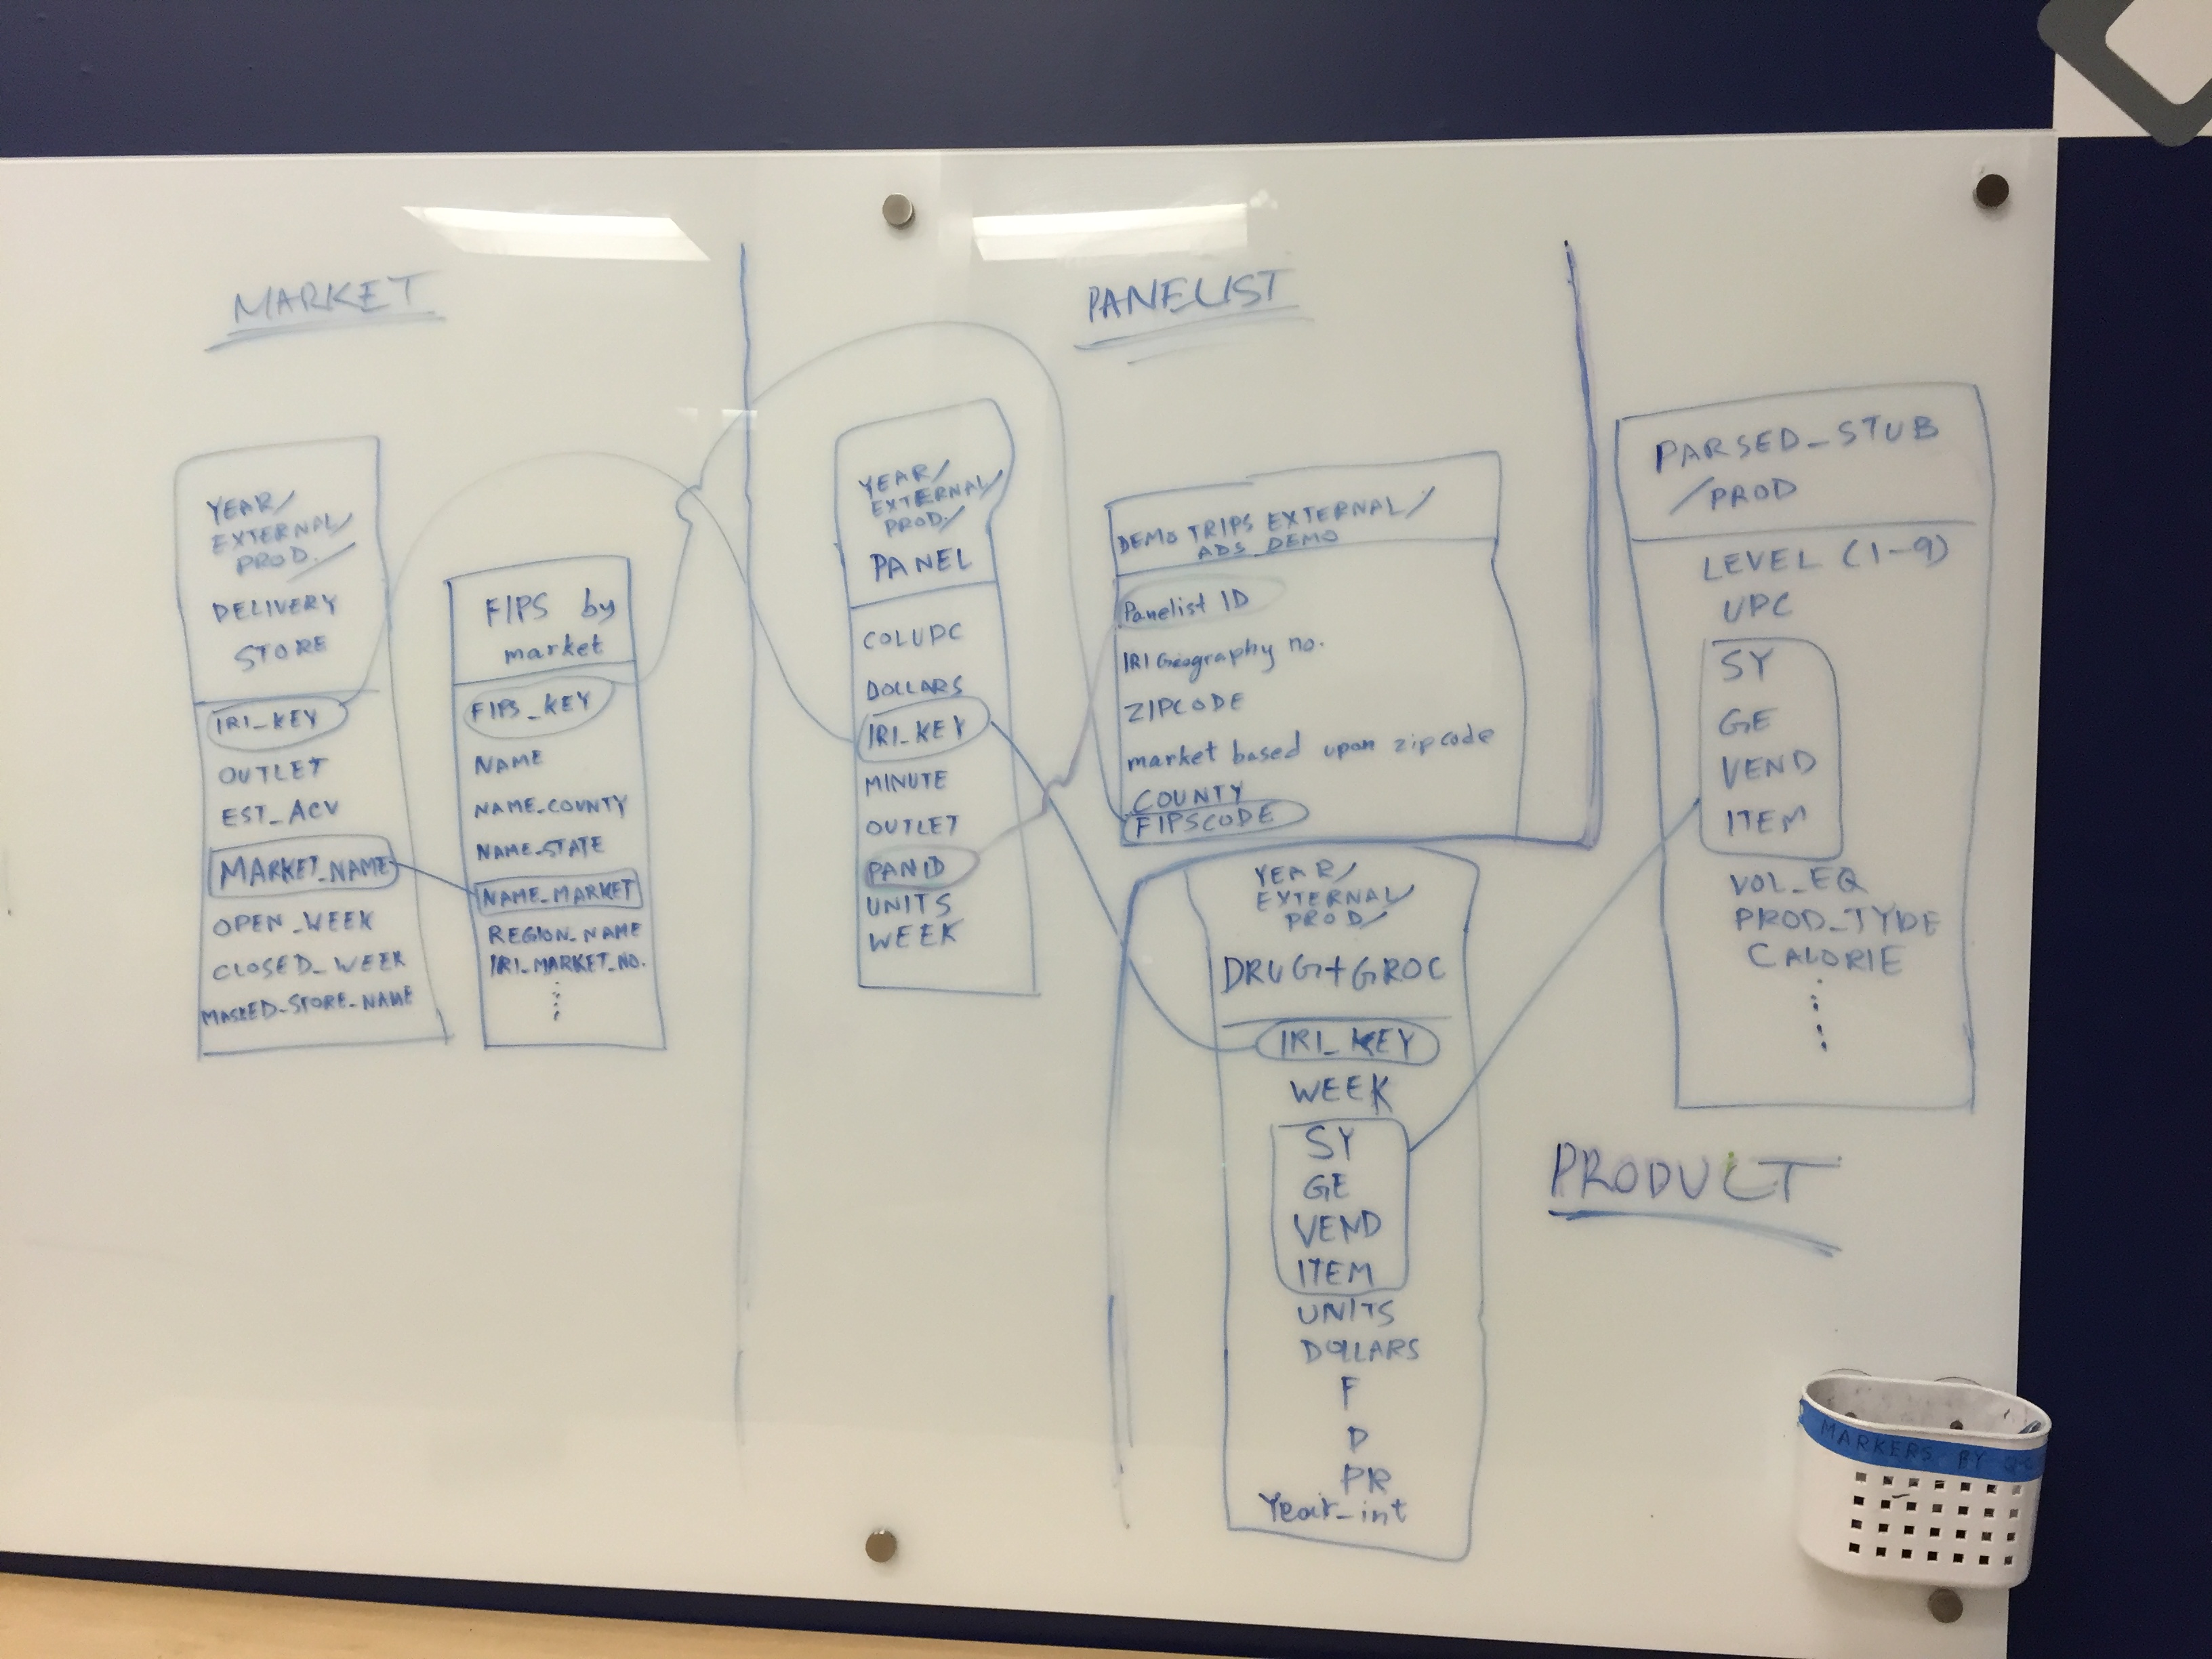 MARKET
YEAR/
EXTERNAL/
PROD./
DELIVERY
STORE
IRI_KEY
OUTLET
EST_ACV
MARKET_NAME
OPEN_WEEK
CLOSED_WEEK
MASKED_STORE_NAME
FIPS by
market
FIPS_KEY
NAME
NAME_COUNTY
NAME_STATE
NAME_MARKET
REGION_NAME
IRI_MARKET_NO.
PANELIST
YEAR/
EXTERNAL/
PROD/
PANEL
COLUPC
DOLLARS
IRI_KEY
MINUTE
OUTLET
PANID
UNITS
WEEK
DEMO TRIPS EXTERNAL/
ADS_DEMO
Panelist ID
IRI Geography no.
ZIPCODE
market based upon zipcode
COUNTY
FIPSCODE
YEAR/
EXTERNAL/
PROD/
DRUG+GROC
IRI_KEY
WEEK
SY
GE
VEND
ITEM
UNITS
DOLLARS
F
D
PR
Year_int
PARSED_STUB
/PROD
LEVEL (1-9)
UPC
SY
GE
VEND
ITEM
VOL_EQ
PROD_TYPE
CALORIE
PRODUCT
MARKERS BY